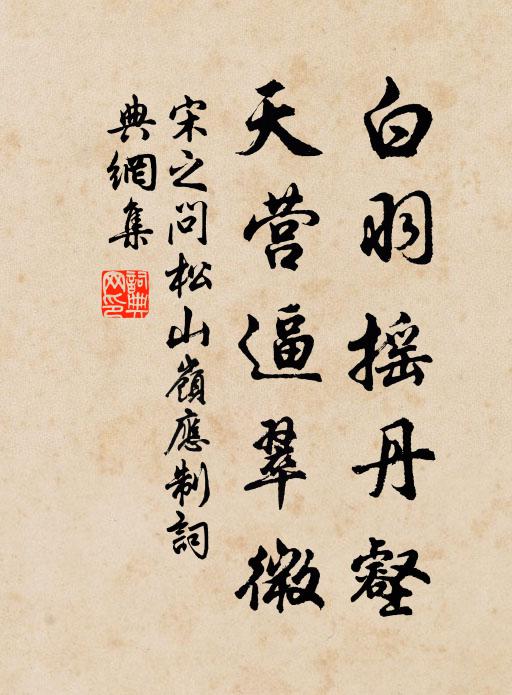 白羽摇丹壑
天营逼翠微
宋之问松山嶺應制詞
典網集
詞典网印